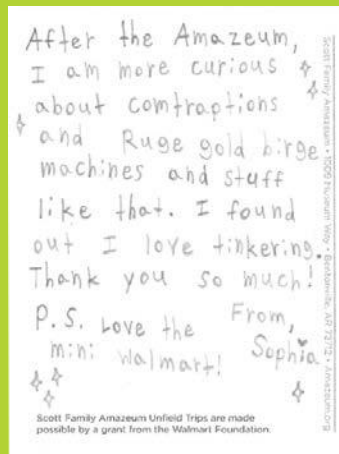 After the Amazeum,
I am more curious
about comtraptions
and Ruge gold birge
machines and stuff
like that. I found
out I love tinkering.
Thank you so much!
From,
Sophia
P.S. Love the
mini Walmart!
Scott Family Amazeum Unfield Trips are made
possible by a grant from the Walmart Foundation.
Scott Family Amazeum • 1009 Museum Way • Bentonville, AR 72712 • Amazeum.org